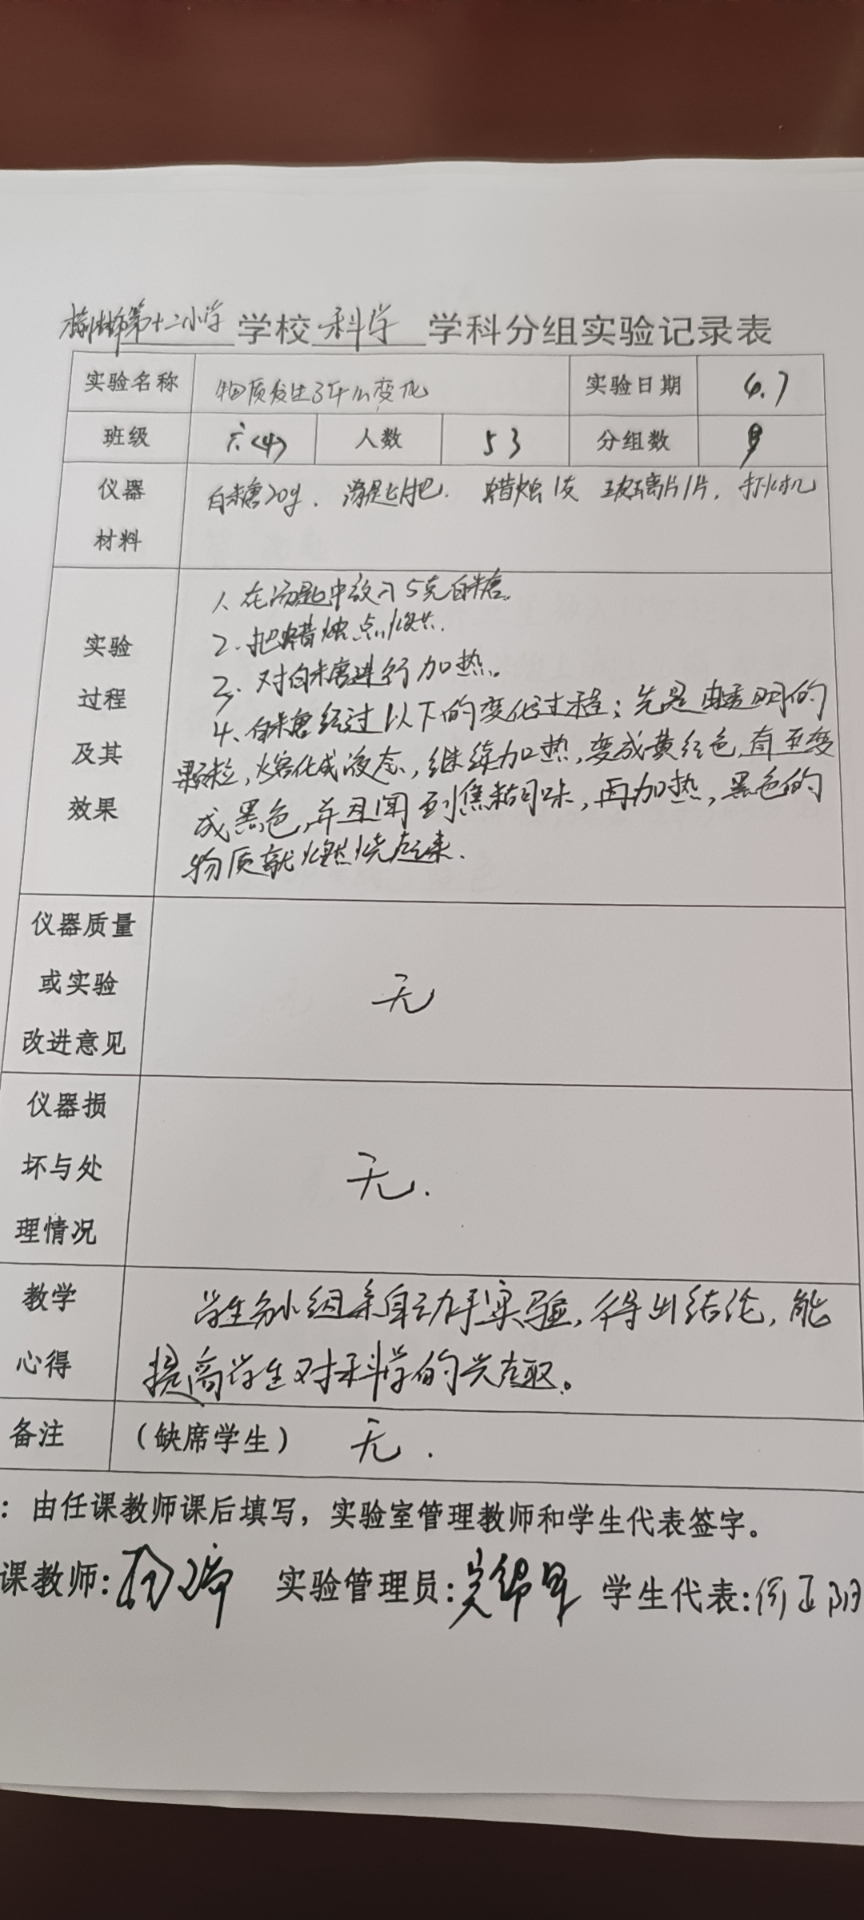 第十二小学学校科学学科分组实验记录表
实验名称 物质发生了什么变化 实验日期 6.7
班级 六<4> 人数 53 分组数
仪器材料 白糖20g. 汤匙1把. 蜡烛1支 玻璃片1片. 打火机
实验过程及其效果
1、在汤匙中放入5克白糖.
2.把蜡烛点燃.
3、对白糖进行加热.
4、白糖经过以下的变化过程:先是由透明的
颗粒,熔化成液态,继续加热,变成黄红色,直至变
成黑色,并且闻到焦糊味,再加热,黑色的
物质就燃烧起来.
仪器质量或实验改进意见 无
仪器损坏与处理情况 无.
教学心得 学生分小组亲自动手实验,得出结论,能
提高学生对科学的兴趣。
备注 (缺席学生) 无.
:由任课教师课后填写,实验室管理教师和学生代表签字。
课教师: 实验管理员: 学生代表: